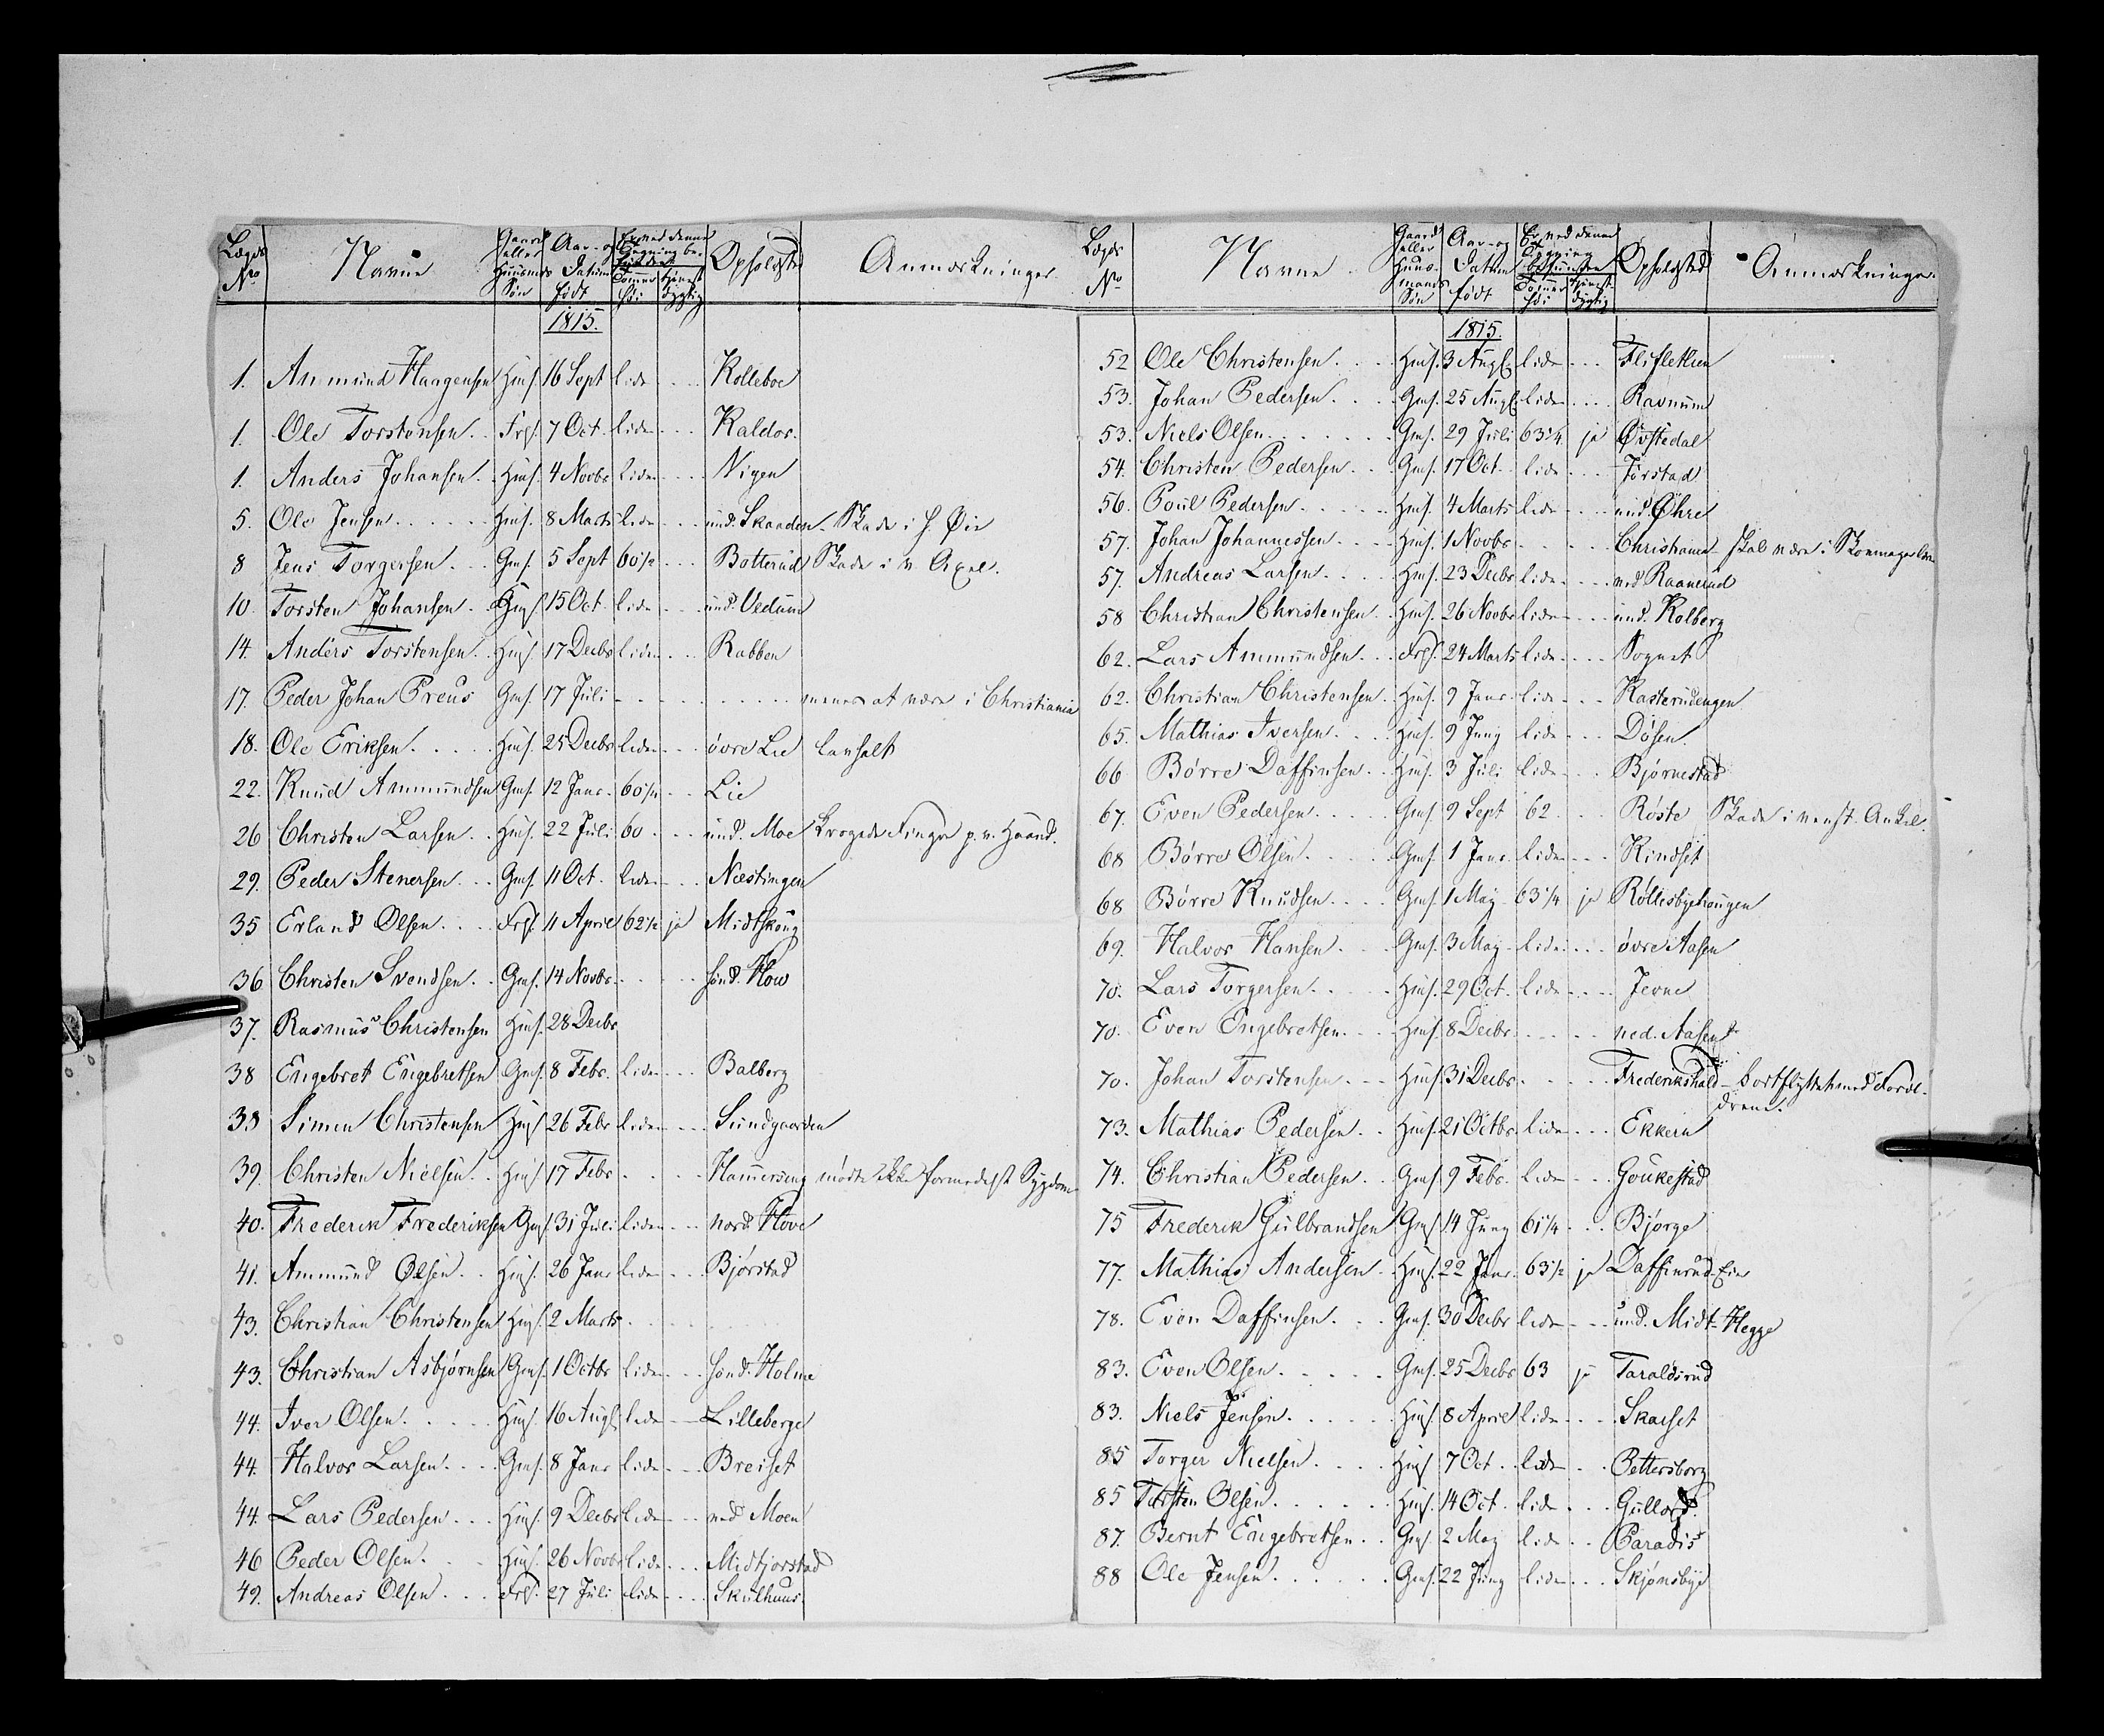 Lægds No Navne Gaard eller Huusmds Søn Aar- og Datum født Er ved denne Tommer høi tjenst- dygtig Opholdsted Anmærkninger.
1815.
1. Ammund Haagensen Hms. 16 Sept lide Kolleboe
1. Ole Torstensen Frs. 7 Oct. liden Kaldor.
1. Anders Johansen Hms. 4 Novbr liden Nigen
5. Ole Jensen Hms. 8 Marts liden und. Skaaden Skade i h. Øie
8 Jens Torgersen Gms. 5 Sept 60 1/2 Botterud Skade i v. Axel.
10. Torsten Johansen Hms 15 Oct. liden und. Vedum
14. Anders Torstensen Hms 17 Decbr liden Rabben
17. Peder Johan Preus Gms. 17 Juli menes at være i Christiania
18. Ole Eriksen Hms. 25 Decbr liden øvre Lie lamhalt
22. Knud Ammundsen Gms. 12 Janr. 60 1/2 Lie
26 Christen Larsen Hms. 22 Juli 60 und. Moe krogede Fingre p. v. Haand.
29. Peder Stenersen Gms. 11 Oct. liden Næstingen
35 Erland Olsen Frs. 11 April 62 1/2 ja Midtskoug
36 Christen Svendsen Gms. 14 Novbr. sønd. How
37. Rasmus Christensen Hms. 28 Decbr
38 Engebret Engebretsen Gms. 8 Febr. liden Balberg
38 Simen Christensen Hms 26 Febr liden Sundgaarden
39. Christen Nielsen Hms 17 Febr Hammerseng mødte ikke formedelst Sygdom
40. Frederik Frederiksen Gms. 31 Juli liden nord. Hove
41. Ammund Olsen Hms. 26 Janr liden Bjørstad
43. Christian Christensen Hms. 2 Marts
43. Christian Asbjørnsen Gms. 1 Octbr liden sønd. Holme
44. Iver Olsen Hms. 16 Augs. liden Lilleberge
44. Halvor Larsen Gms. 8 Janr liden Breiset
44. Lars Pedersen Hms. 9 Decbr liden ned Moen
46 Peder Olsen Hms. 26 Novbr liden Midtjorstad
49. Andreas Olsen Frs. 27 Juli liden Skulhuus.
Lægds No Navne Gaard eller Huus- mands Søn Aar- og Datum født Er ved denne Tommer høi tjenst- dygtig Opholdsted Anmærkninger.
1815.
52 Ole Christensen Hms. 3 Augs. liden Fliflethen
53. Johan Pedersen Gms. 25 Augs. liden Ravnum
53. Niels Olsen Gms. 29 Juli 63 1/4 ja Øvstedal
54. Christen Pedersen Gms. 17 Oct. liden Jörstad
56. Poul Pedersen Hms. 4 Marts liden und. Øhre
57. Johan Johannessen Hms. 1 Novbr Christiania skal være i Skomagerlære
57. Andreas Larsen Hms. 23 Decbr liden ned Raanerud
58 Christian Christensen Hms. 26 Novbr liden und. Kolberg
62. Lars Ammundsen Frs. 24 Marts liden Sognet
62. Christian Christensen Hms. 9 Janr. liden Kasterudengen
65. Mathias Iversen Hms. 9 Juny liden Døsen.
66 Børre Daffinsen Hms. 3 Juli liden Bjørnestad
67. Even Pedersen Gms. 9 Sept 62 Røste Skade i venst. Ankel.
68 Børre Olsen Gms. 1 Janr. liden Kindset
68 Børre Knudsen Gms. 1 May 63 1/4 ja Röllesbyehougen
69. Halvor Hansen Gms. 3 May liden øvre Aasen
70. Lars Torgersen Hms. 29 Oct. liden Jevne
70. Even Engebretsen Hms. 8 Decbr. ned. Aasen
70. Johan Torstensen Hms. 31 Decbr. Frederikshald bortflyttet med Foræl-
drene.
73. Mathias Pedersen Hms. 21 Octbr. liden Ekkern
74. Christian Pedersen Gms. 9 Febr. liden Goukestad
75 Frederik Gulbrandsen Gms 14 Juny 61 1/4 Bjørge
77. Mathias Andersen Hms. 22 Janr. 63 1/2 ja Daffinrud Eie
78. Even Daffinsen Gms. 30 Decbr liden und. Midt-Hegge
83. Even Olsen Gms. 25 Decbr 63 ja Taraldsrud
83. Niels Jensen Hms. 8 April liden Skarset
85 Torger Nielsen Hms 7 Oct. liden Pettersborg
85 Torsten Olsen Hms. 14 Oct. liden Gullord.
87. Bernt Engebretsen Gms. 2 May liden Paradis
88 Ole Jensen Gms. 22 Juny liden Skjønsbye